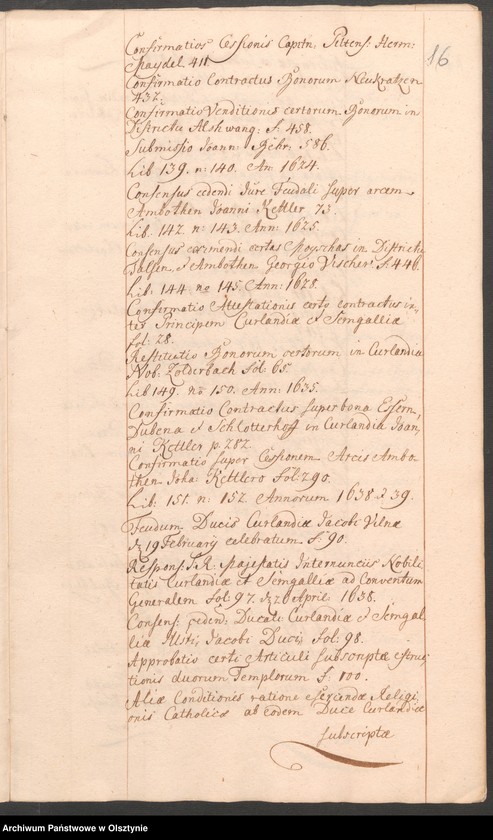 16
Confirmatios Cessionis Capitn. Piltens: Herm:
Maydel 411
Confirmatio Contractus Bonorum Neukratzen
432.
Confirmatio Venditionis certorum Bonorum in
Districtu Alshwang: f. 458.
Submissio Joann: Behr. 586.
Lib 139. n: 140. An: 1624.
Consensus cedendi Jure Feudali super arcem
Ambothen Joanni Kettler 73.
Lib: 142. n: 143. Ann: 1625.
Consensus certas in Districtu
Talsen & Ambothen Georgio Vischer f. 446.
Lib: 144 no 145. Ann: 1628.
Confirmatio Attestationis certo contractus in,
ter Principem Curlandiæ & Semgalliæ
fol: 28.
Restitutio Bonorum certorum in Curlandia
Nob: Zolderbach fol: 65.
Lib 149. no 150. Ann: 1635.
Confirmatio Contractus super bona Essern,
Dubena & Schlotterhoff in Curlandia Joan,
ni Kettler p. 282.
Confirmatio super Cessionem Arcis Ambo
then Joha: Kettlero fol: 290.
Lib: 151. n: 152. Annorum 1638 & 39.
Feudum Ducis Curlandiæ Jacobi Vilnæ
19 February celebratum f. 90.
Respons S.R. Majestatis Internunciis Nobili
tatis Curlandiæ et Semgalliæ ad Conventum
Generalem fol: 97. 26 April 1638.
Consens: Ducati Curlandiæ & Semgal,
liæ Illstri Jacobi Ducis fol: 98.
Approbatio certi Articuli subscriptæ exstruc
tionis duorum Templorum f: 100.
Aliæ Conditiones ratione exercendæ Religi,
onis Catholicæ ab eodem Duce Curlandiæ
subscriptæ
Archiwum Państwowe w Olsztynie